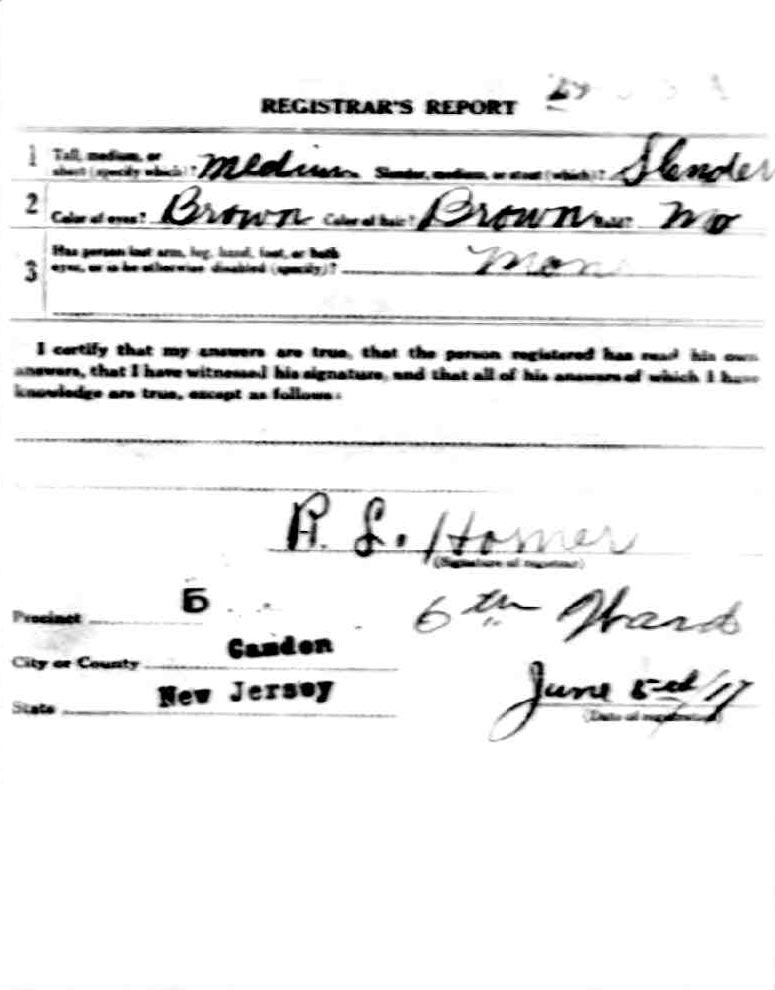 REGISTRAR'S REPORT
1 Tall, medium, or short (specify which)? Medium Slender, medium, or stout (which)? Slender
2 Color of eyes? Brown Color of hair? Brown Bald? No
3 Has person lost arm, leg, hand, foot, or both
eyes, or is he otherwise disabled (specify)? Non
I certify that my answers are true, that the person registered has read his own
answers, that I have witnessed his signature, and that all of his answers of which I have
knowledge are true, except as follows:
R. L. Homer
(Signature of registrar)
Precinct 5 6th Ward
City or County Camden
State New Jersey June 5 /17
(Date of registration)